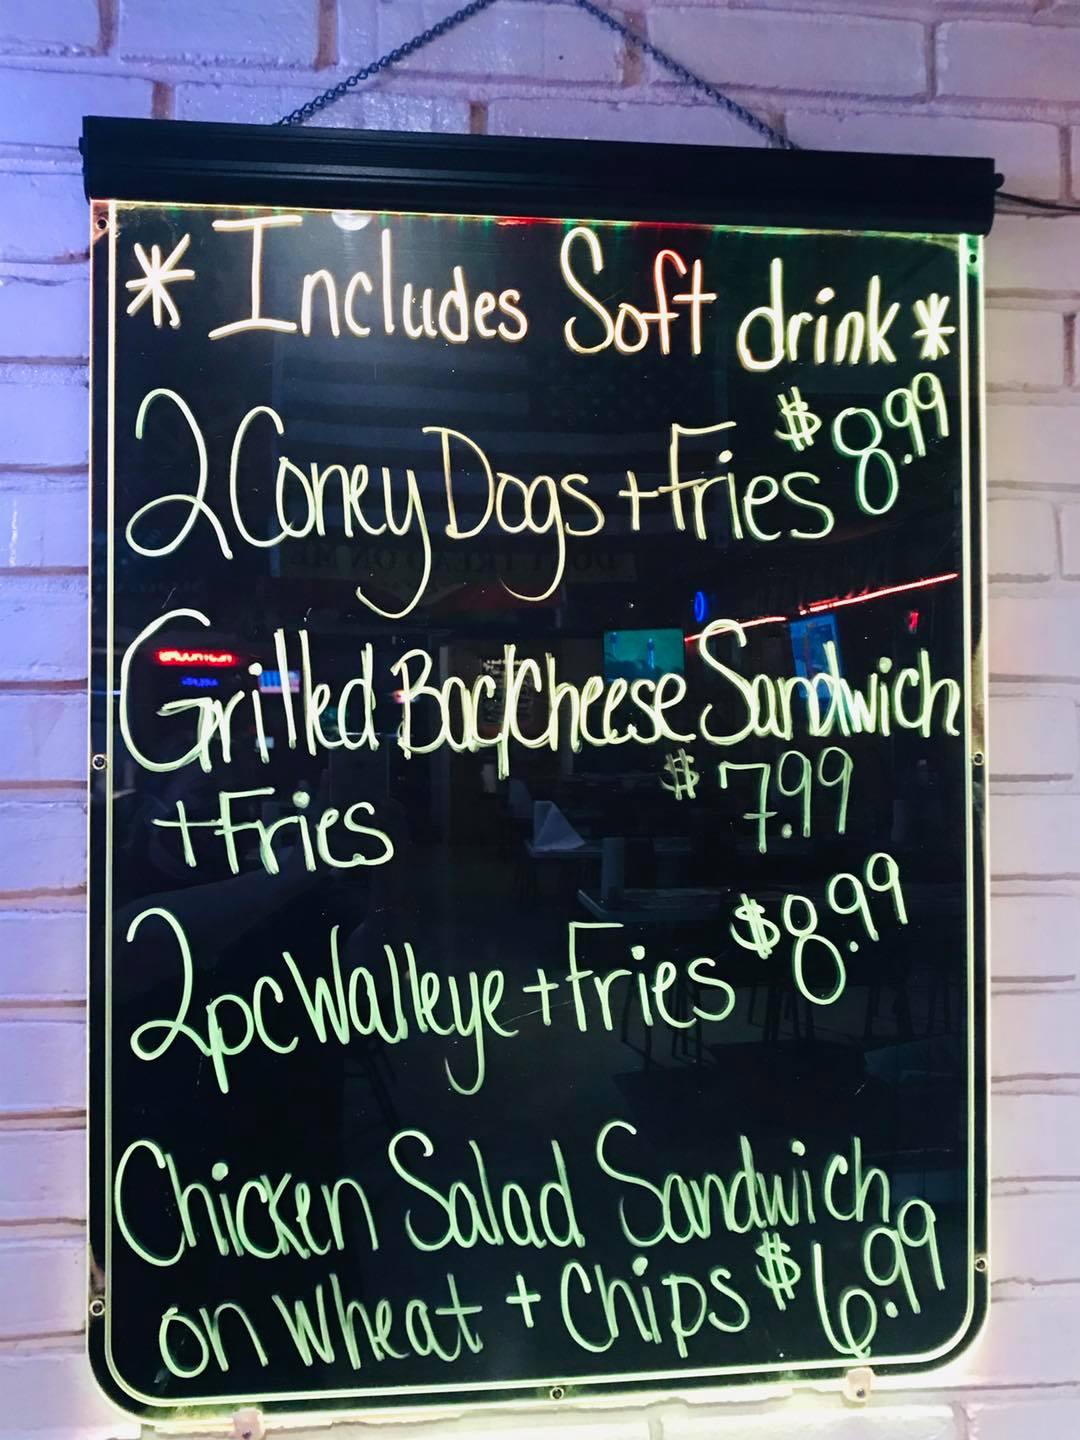 * Includes Soft drink *
2 Coney Dogs + Fries $8.99
Grilled Bac/Cheese Sandwich
+ Fries $7.99
2pc Walleye + Fries $8.99
Chicken Salad Sandwich
on Wheat + Chips $6.99